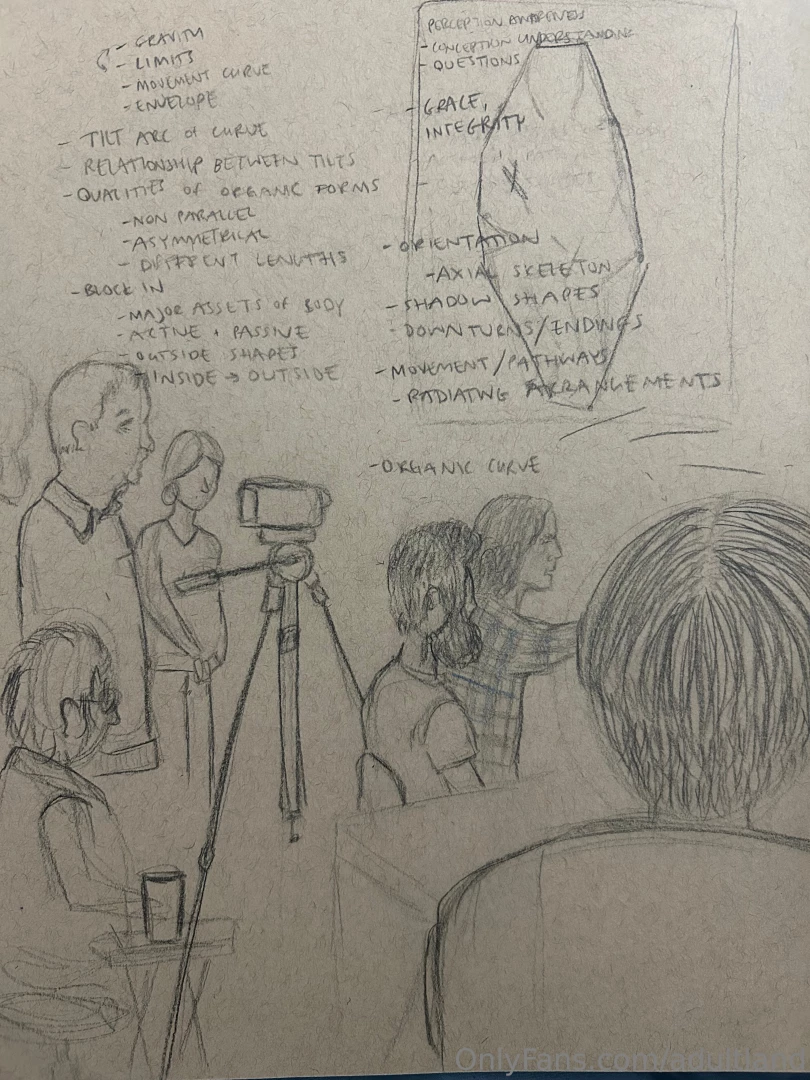 - GRAVITY
- LIMITS
- MOVEMENT CURVE
- ENVELOPE
- TILT ARC of CURVE
- RELATIONSHIP BETWEEN TILTS
- QUALITIES OF ORGANIC FORMS
- NON PARALLEL
- ASYMMETRICAL
- DIFFERENT LENGTHS
- BLOCK IN
- MAJOR ASSETS OF BODY
- ACTIVE + PASSIVE
- OUTSIDE SHAPES
- INSIDE → OUTSIDE
PERCEPTION AWARENESS
- CONCEPTION UNDERSTANDING
- QUESTIONS
- GRACE,
INTEGRITY
- ORIENTATION
- AXIAL SKELETON
- SHADOW SHAPES
- DOWNTURNS/ENDINGS
- MOVEMENT/PATHWAYS
- RADIATING ARRANGEMENTS
- ORGANIC CURVE